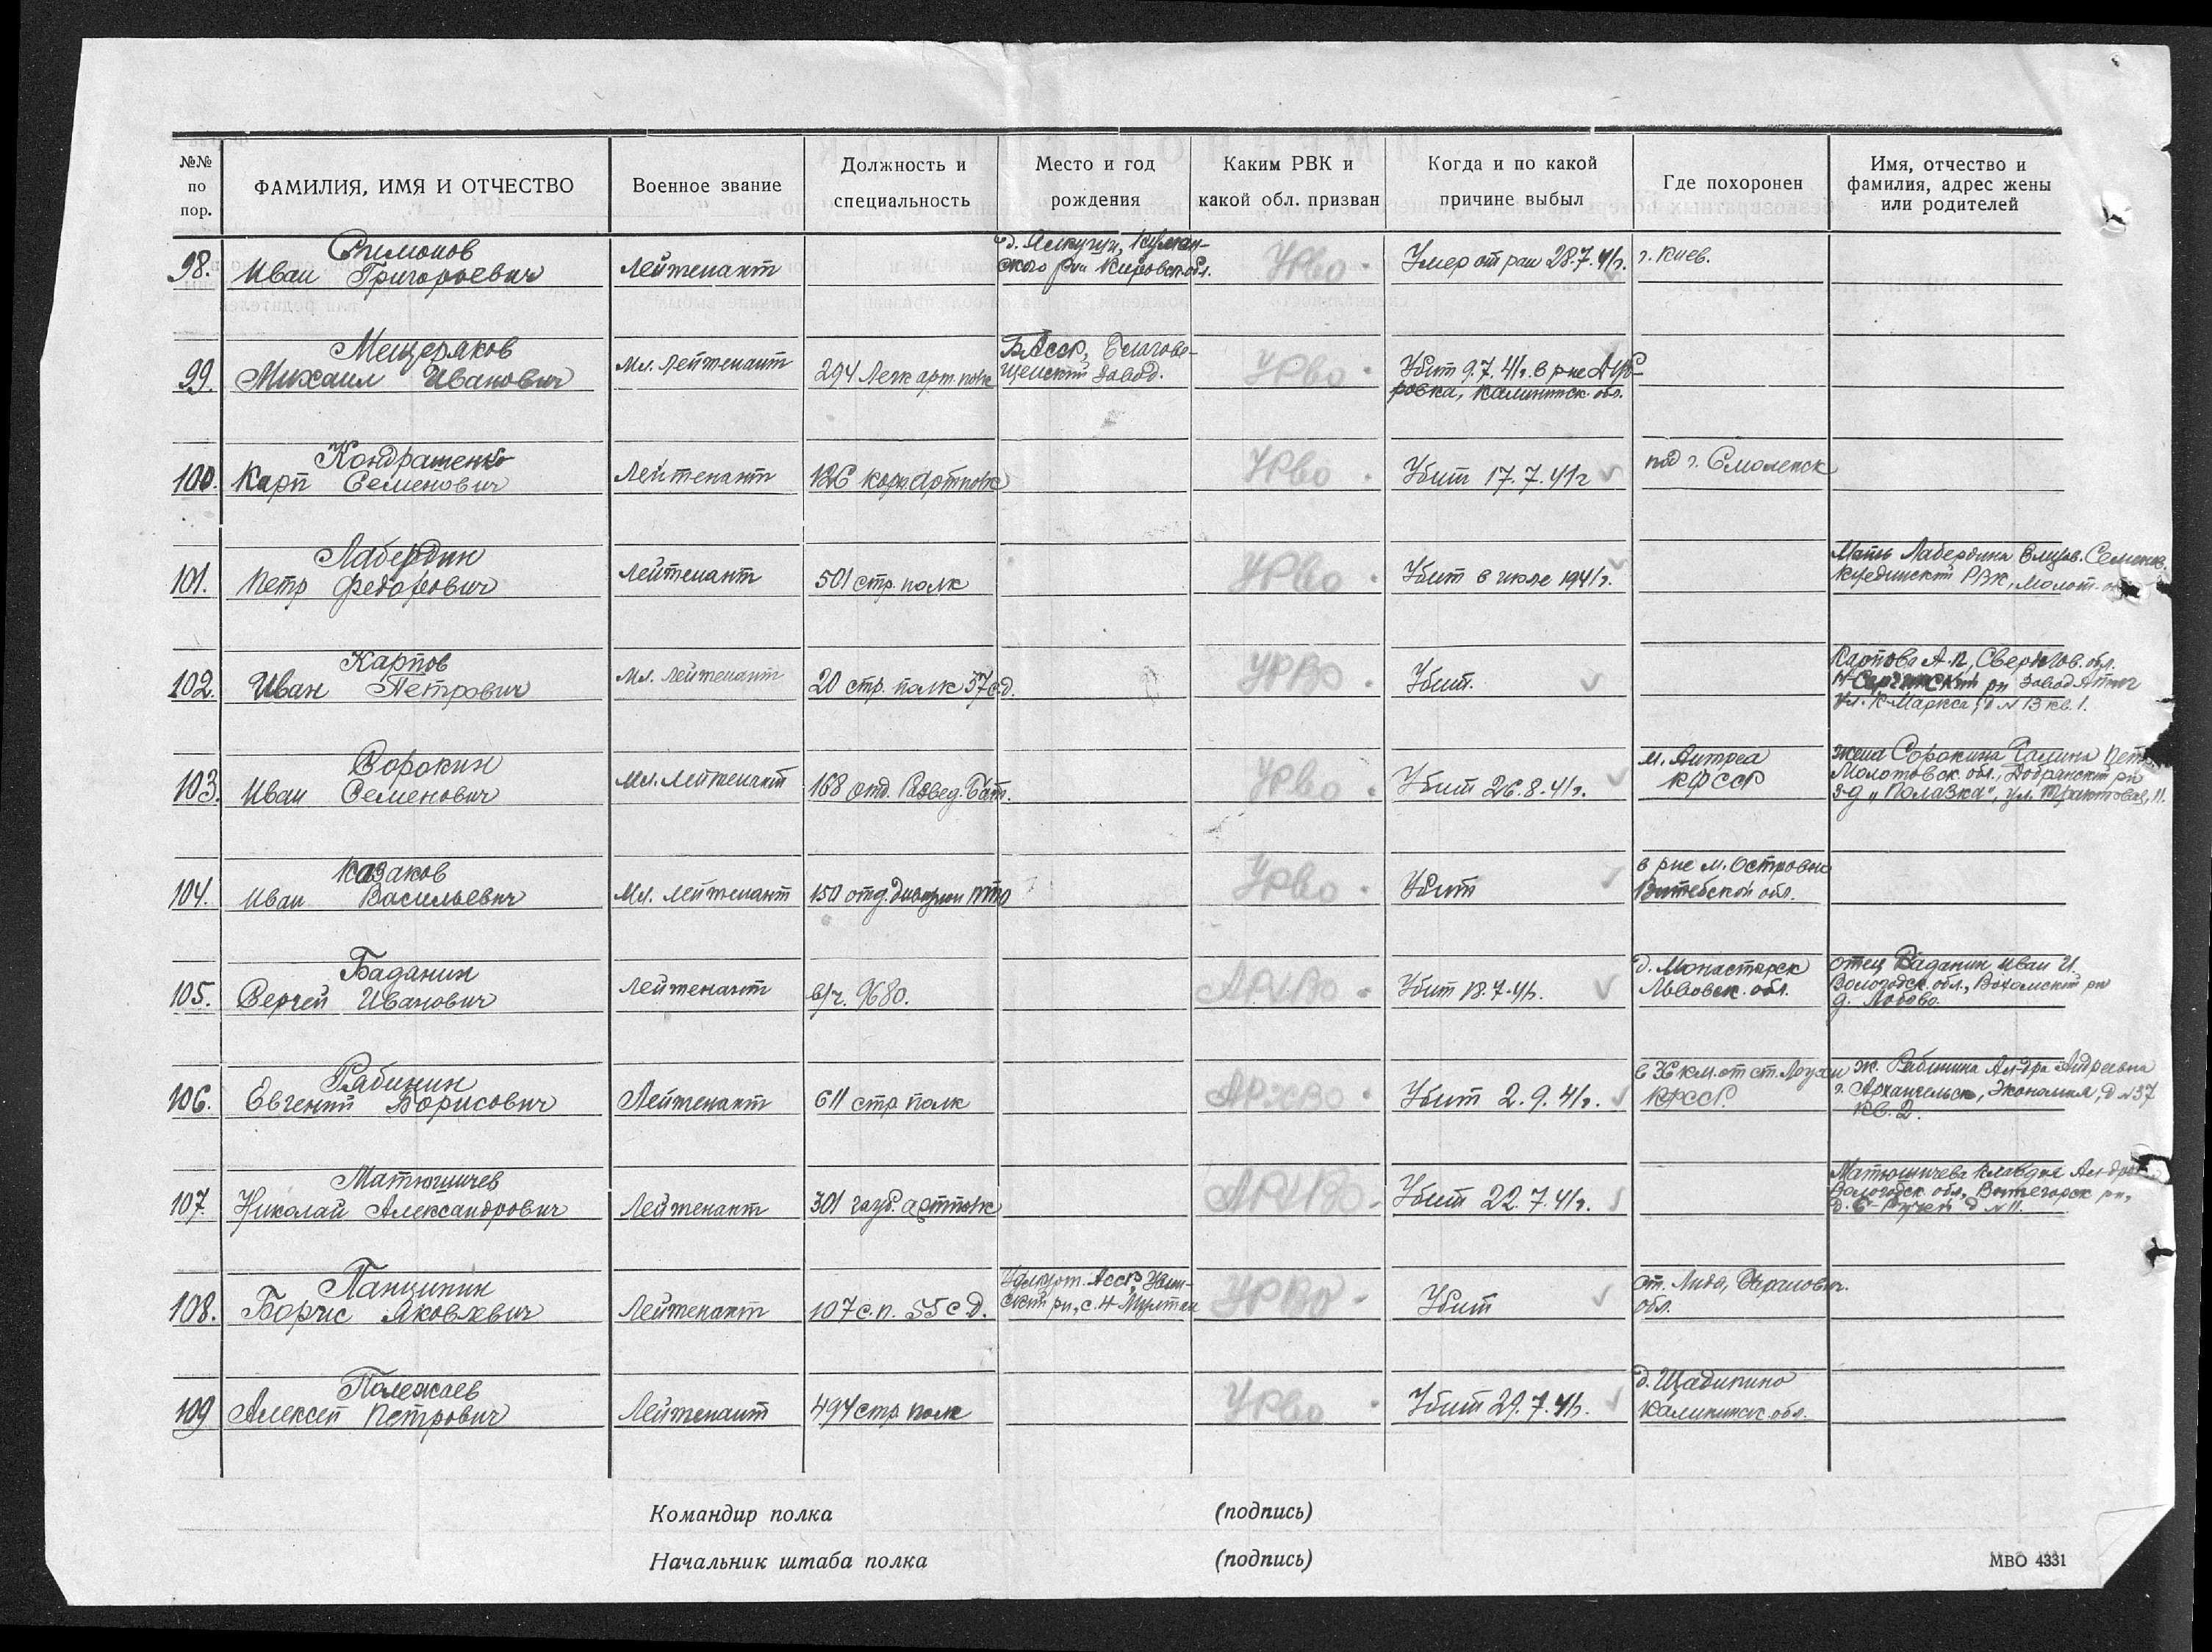 №№ по пор.
ФАМИЛИЯ, ИМЯ И ОТЧЕСТВО
Военное звание
Должность и специальность
Место и год рождения
Каким РВК и какой обл. призван
Когда и по какой причине выбыл
Где похоронен
Имя, отчество и фамилия, адрес жены или родителей
98.
Симонов
Иван Григорьевич
Лейтенант
ского рн Кировск. обл.
УРВО
Умер от ран 28.7.41г.
г. Киев.
99.
Мещеряков
Михаил Иванович
Мл. Лейтенант
294 Легк арт. полк
БАССР, Благове-
щенский завод.
УРВО
Убит 9.7.41г. в рне
ровка, Калининск. обл.
100.
Кондратенко
Карп Семенович
Лейтенант
126 корп артполк
УРВО
Убит 17.7.41г
под г. Смоленск
101.
Лабердин
Петр Федорович
Лейтенант
501 стр. полк
УРВО
Убит в июле 1941г.
Мать Лабердина Елизав. Семенов.
Куединский РВК, Молот.
102.
Карпов
Иван Петрович
Мл. Лейтенант
20 стр. полк 37 с.д.
УРВО
Убит.
Карпова А.П., Свердлов. обл.
Н-Сергинский рн завод Атиг
ул. К-Маркса, д N 13 кв. 1.
103.
Сорокин
Иван Семенович
Мл. Лейтенант
168 отд. Развед. Бат.
УРВО
Убит 26.8.41г.
м. Антреа
КФССР
жена Сорокина Галина Петр.
Молотовск. обл., Добрянский рн
з-д „Полазка", ул. Трактовая, 11.
104.
Казаков
Иван Васильевич
Мл. Лейтенант
150 отд. дивизион ПТО
УРВО
Убит
в рне м. Островно
Витебской обл.
105.
Баданин
Сергей Иванович
Лейтенант
в/ч. 9680.
АРХВО
Убит 18.7.41г.
д. Монастарск
Львовск. обл.
отец Баданин Иван И.
Вологодск. обл., Вохомский рн
д. Лобово.
106.
Рябинин
Евгений Борисович
Лейтенант
611 стр полк
АРХВО
Убит 2.9.41г.
в 36 км. от ст. Лоухи
КФССР.
ж. Рябинина Ал-дра Андреевна
г. Архангельск, Экономия, д N 37
кв. 2.
107.
Матюшичев
Николай Александрович
Лейтенант
301 гауб. артполк
АРХВО
Убит 22.7.41г.
Матюшичева Клавдия Ал-др
Вологодск. обл., Вытегорск рн,
Ручей д N 11.
108.
Панципин
Борис Яковлевич
Лейтенант
107 с.п. 55 с.д.
Удмурт. АССР, Увин-
ский рн, с. Н Мултан
УРВО
Убит
ст. Лида, Баранович.
обл.
109
Полежаев
Алексей Петрович
Лейтенант
494 стр полк
УРВО
Убит 29.7.41г.
д. Щадинино
Калининск. обл.
Командир полка (подпись)
Начальник штаба полка (подпись)
МВО 4331